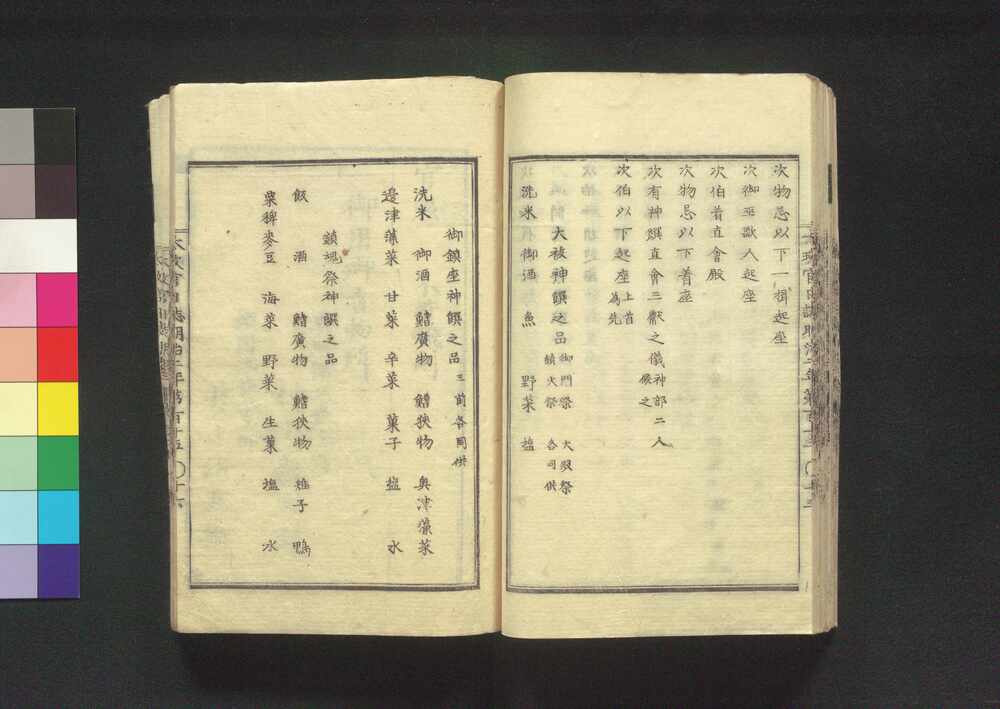 次物忌以下一揖起座
次御巫猷人起座
次伯着直會殿
次物忌以下着座
次有神饌直會三献之儀神部二人
候之
次伯以下起座上首
為先
大祓神饌之品御門祭 大殿祭
鎮火祭 各同供
洗米 御酒 魚 野菜 塩
御鎮座神饌之品三前各同供
洗米 御酒 鰭廣物 鰭狹物 奥津藻菜
邊津藻菜 甘菜 辛菜 菓子 塩 水
鎮魂祭神饌之品
飯 酒 鰭廣物 鰭狹物 雉子 鴨
粟稗麥豆 海菜 野菜 生菓 塩 水
太政官日誌明治二年第百十五 〇十六